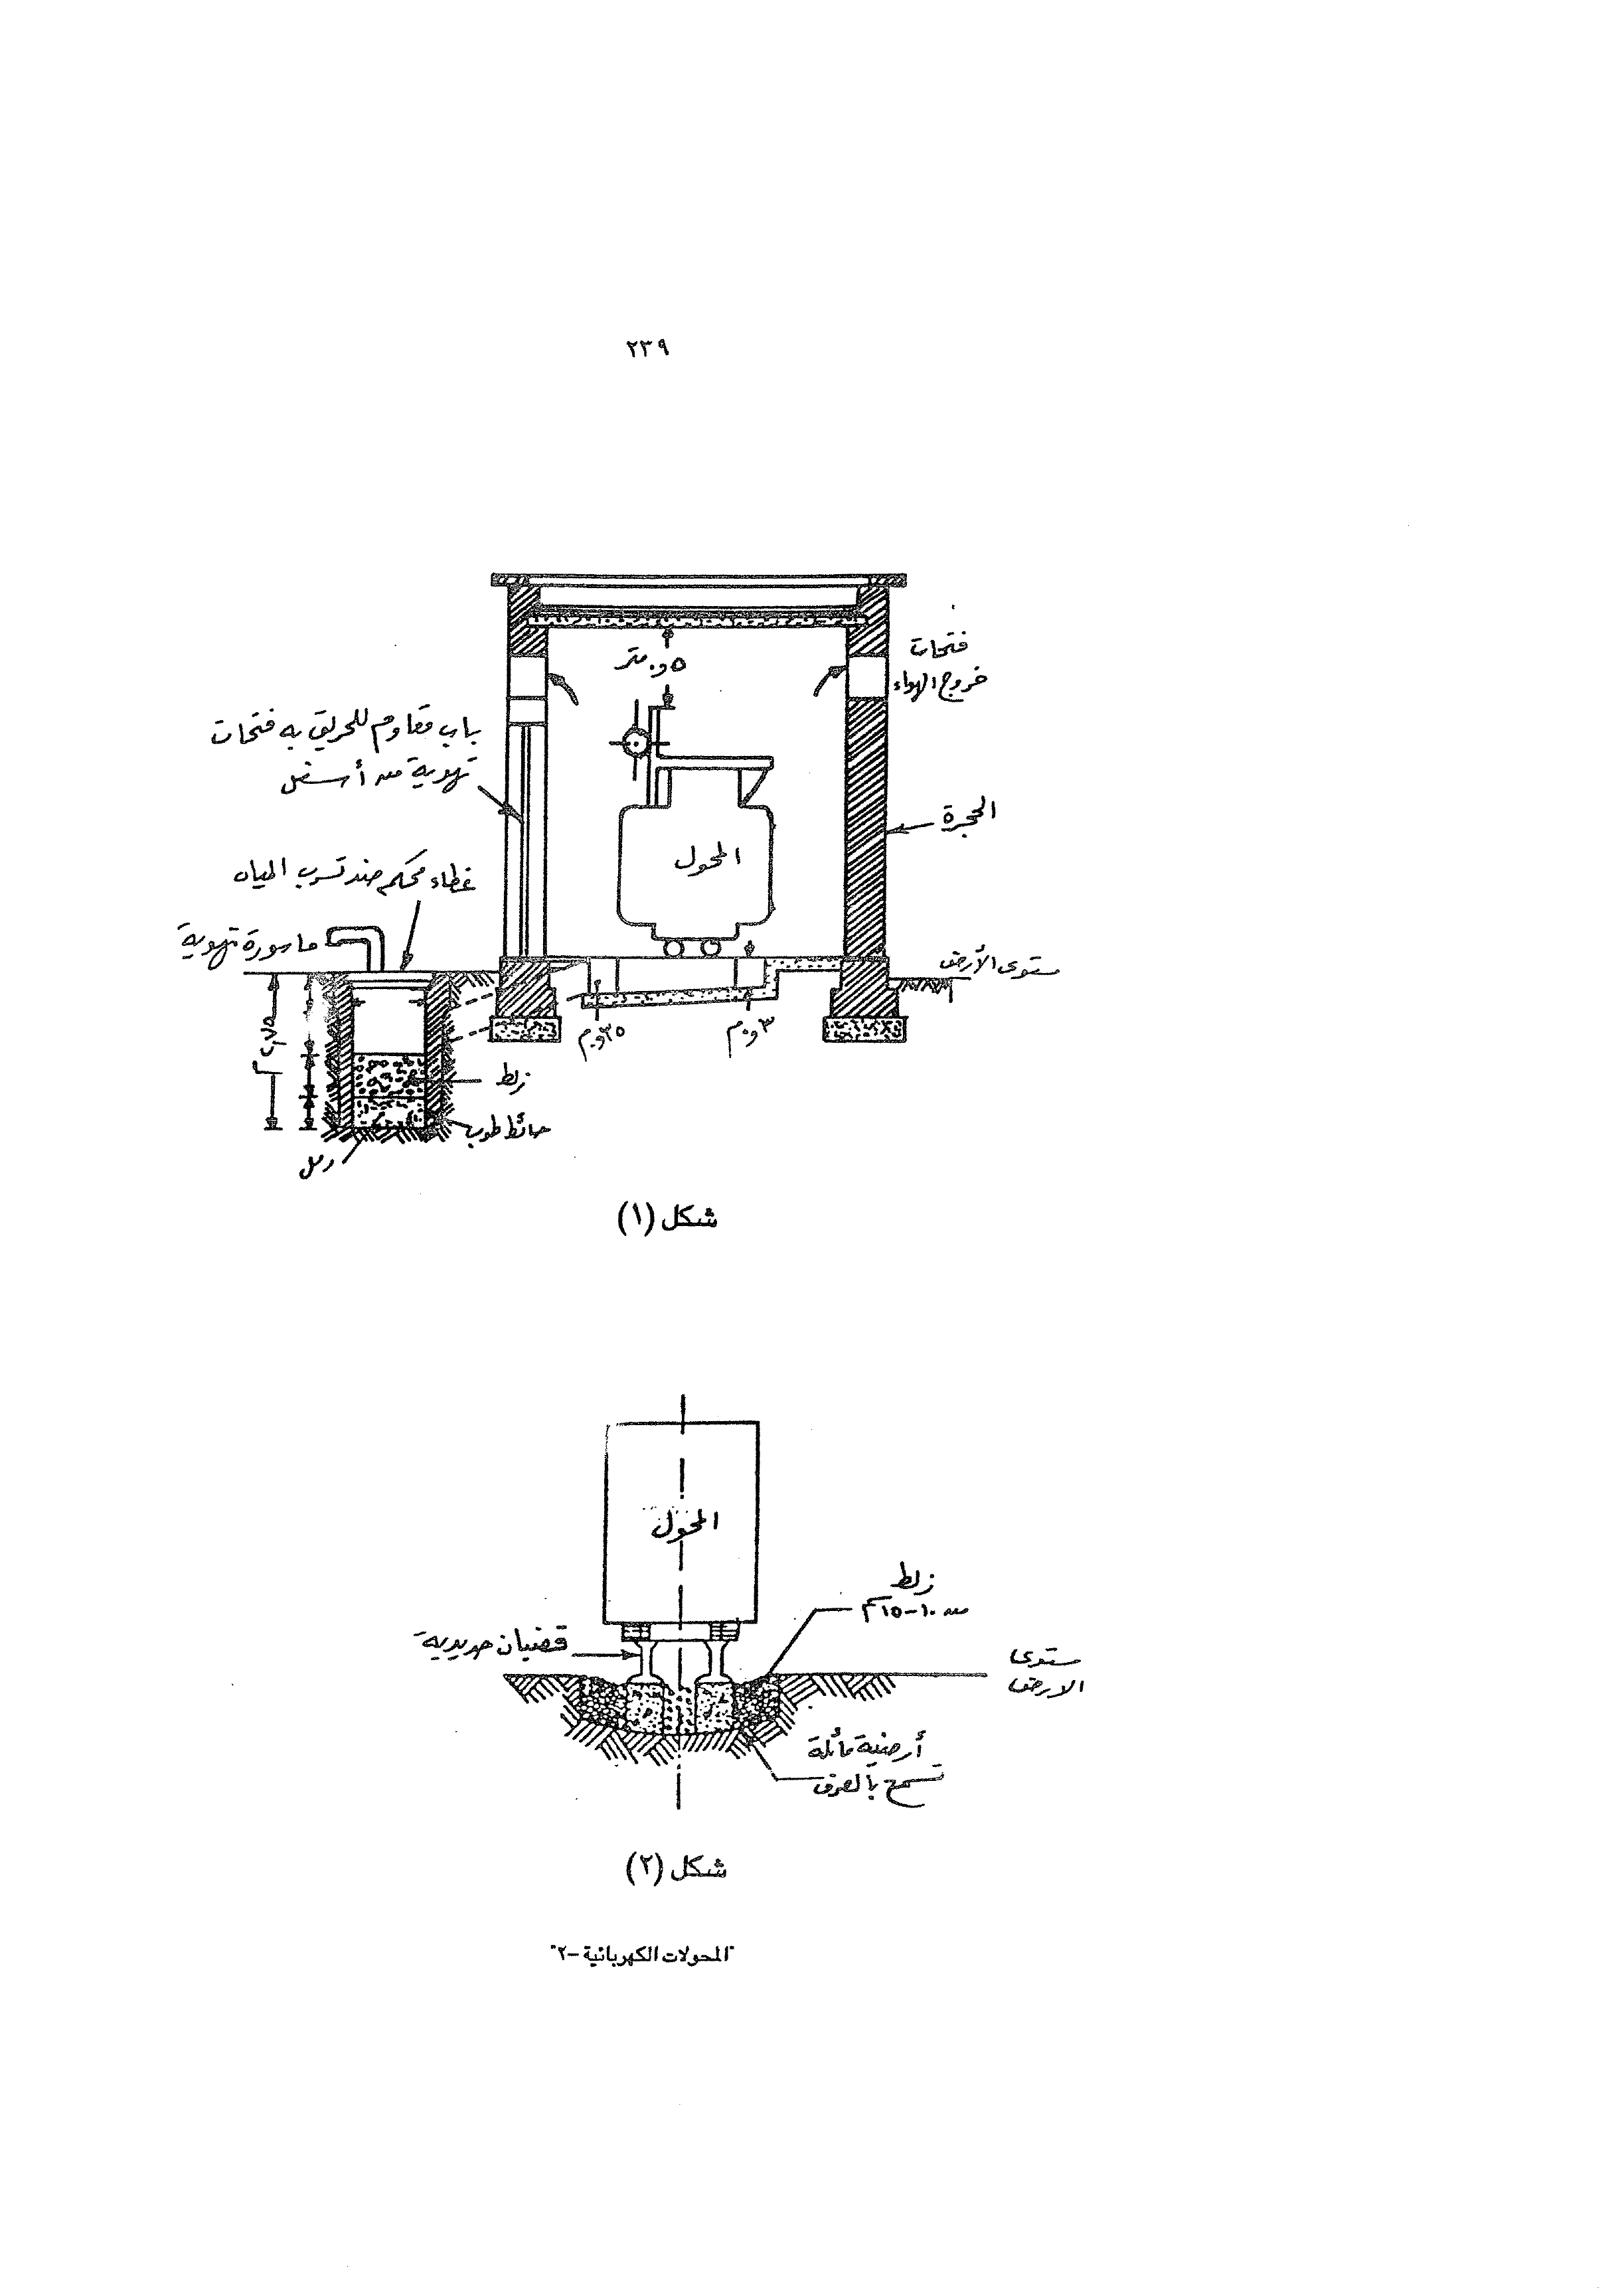 ٢٣٩
٥و٠ متر
فتحات
خروج الهواء
باب مقاوم للحريق به فتحات
تهوية من أسفل
المحول
الحجرة
غطاء محكم ضد تسرب المياه
ماسورة تهوية
مستوى الأرض
٣و٠ م
٢٥و٠ م
زلط
حائط طوب
رمل
شكل (١)
المحول
زلط
من ١٠-١٥ سم
قضبان حديدية
مستوى
الارض
أرضية مائلة
تسمح بالصرف
شكل (٢)
"المحولات الكهربائية -٢"